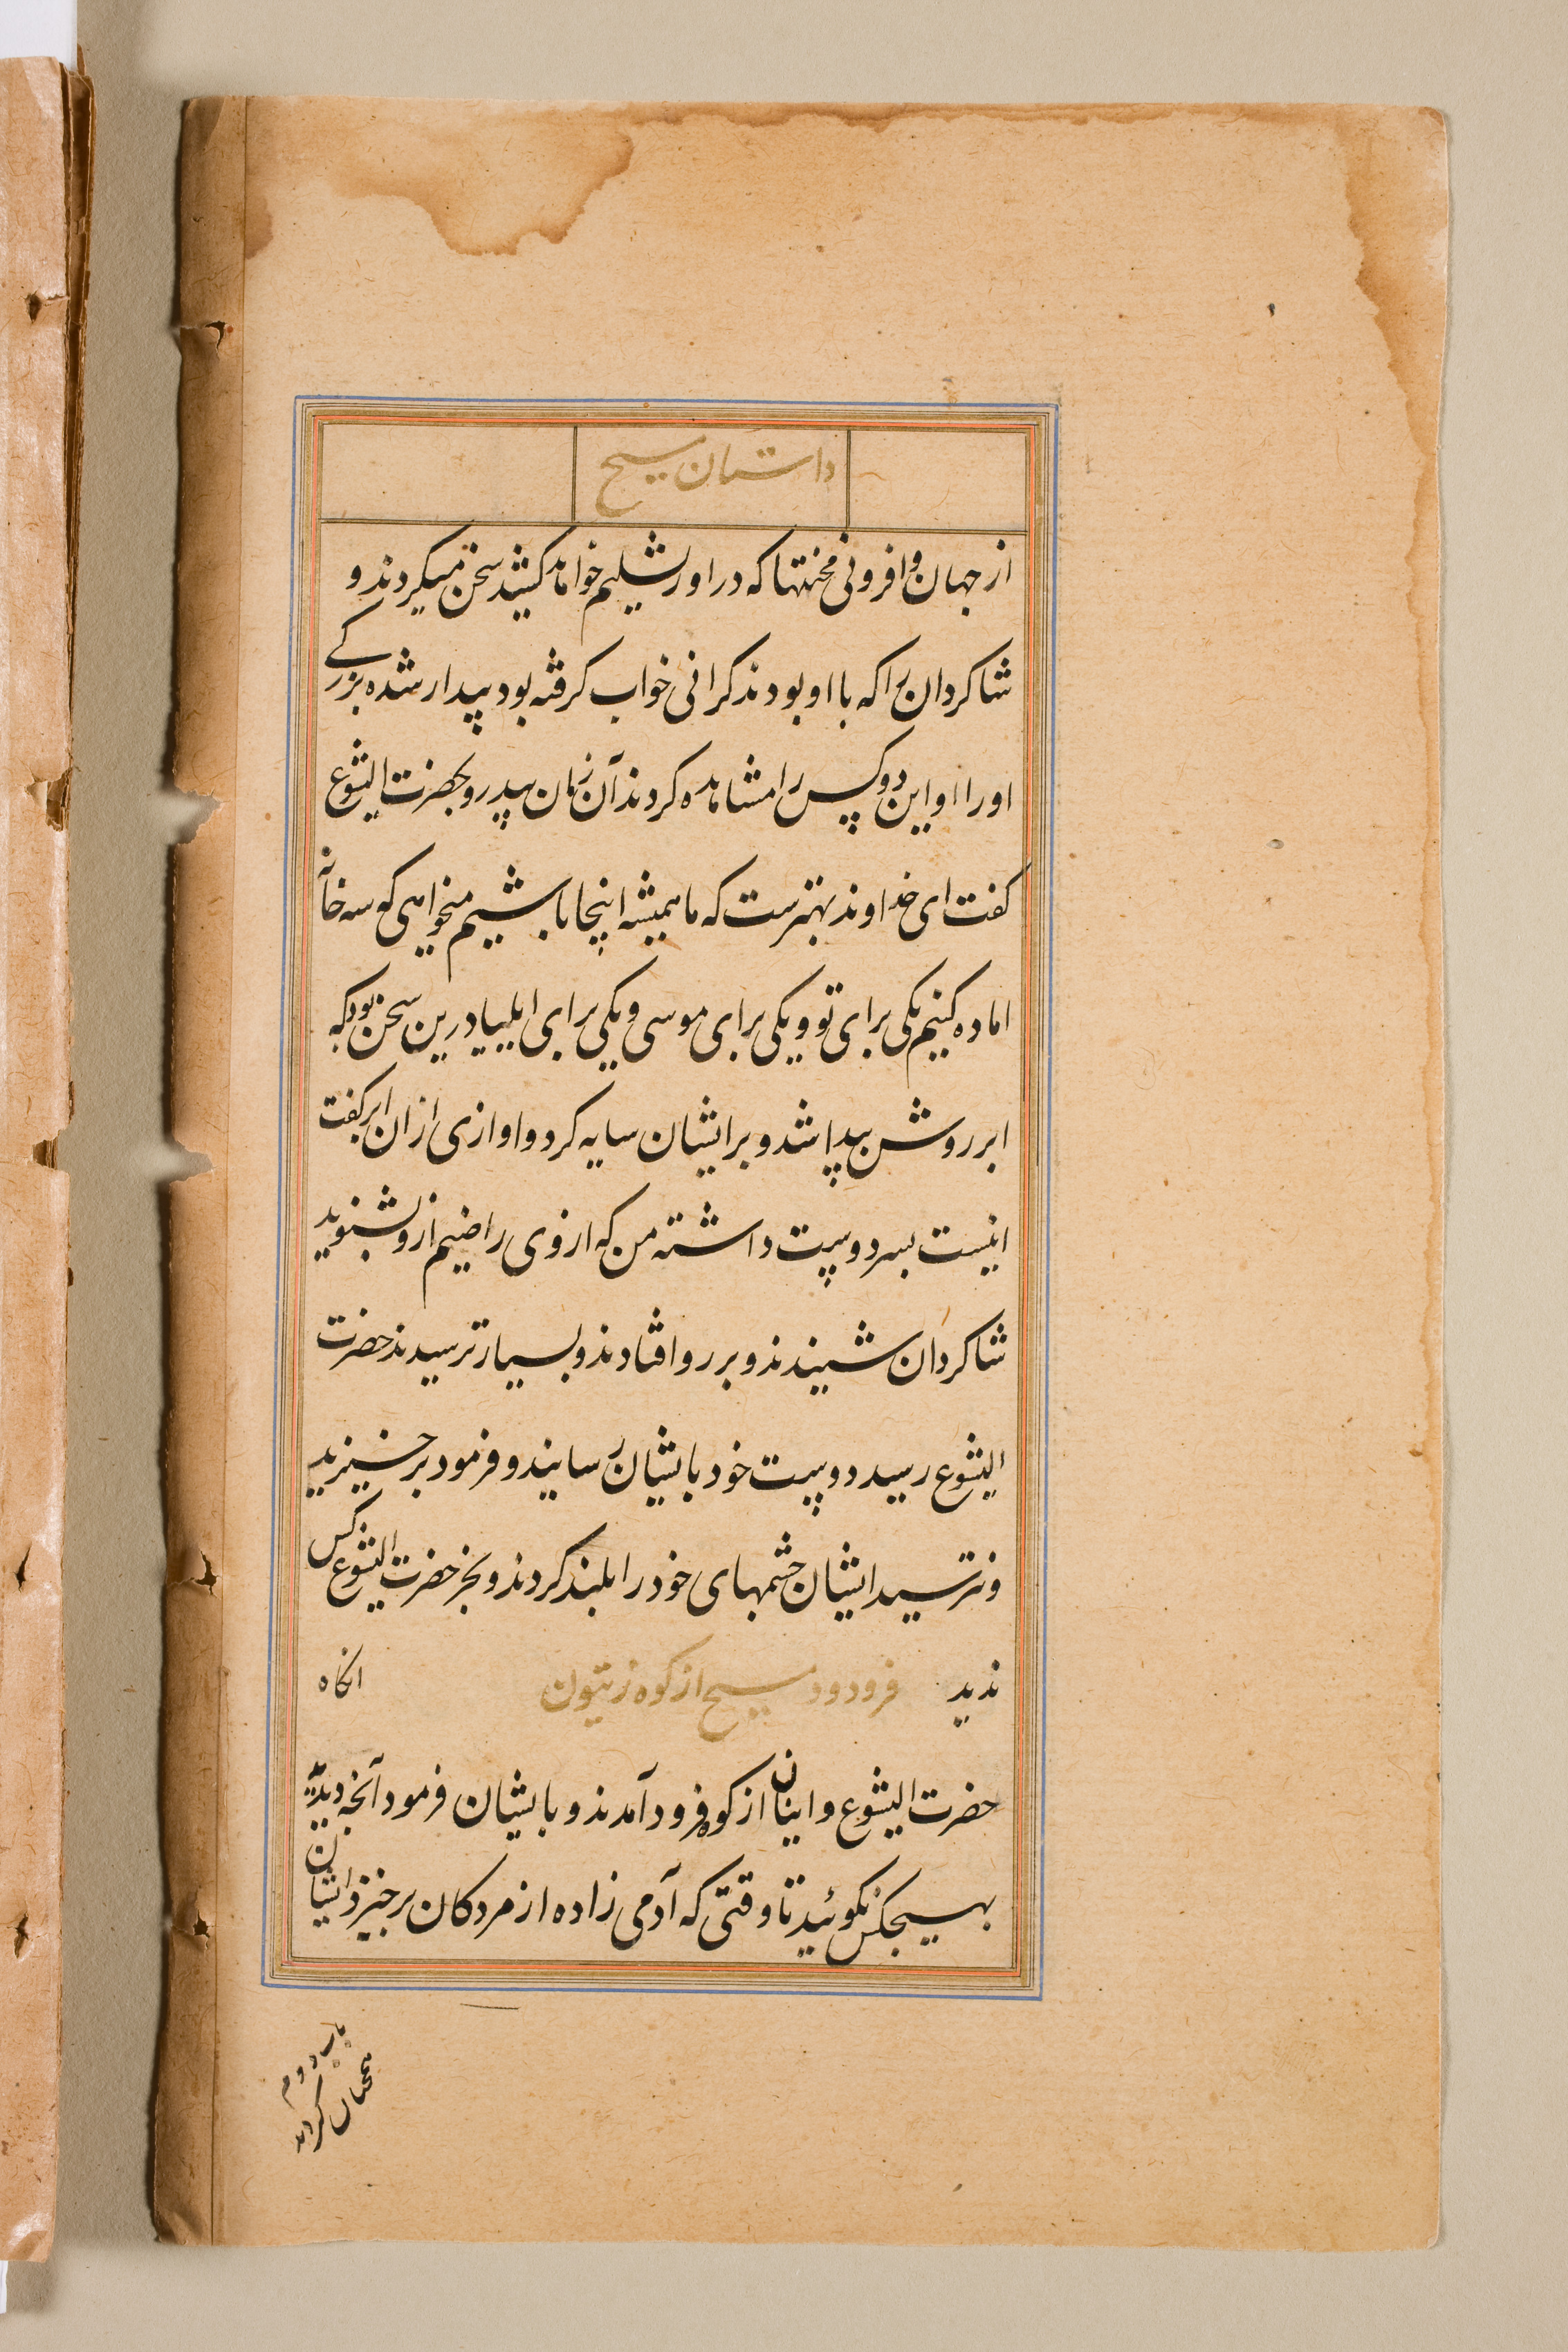 داستان مسیح
از جهان و افرونی محنتها که در اورشلیم خواهد کشید سخن میکردند و
شاکردان را که با او بودند کرانی خواب کرفته بود بیدار شده بزرکے
او را و این دو کس را مشاهده کردند آن زمان پیدرو بحضرت الیشوع
کفت ای خداوند بهترست که ما همیشه اینجا باشیم میخواهی که سه خانه
اماده کنیم یکی برای تو و یکی برای موسی و یکی برای ایلیا درین سخن بود که
ابر روشن پیدا شد و بر ایشان سایه کرد و اوازی از ان ابر کفت
اینست پسر دوست داشته من که از وی راضیم ازو بشنوید
شاکردان شنیدند و بر رو افتادند و بسیار ترسیدند حضرت
الیشوع رسید و دست خود بایشان رسانید و فرمود برخیزید
و نترسید ایشان چشمهای خود را بلند کردند و بجز حضرت الیشوع کس
ندید فرود ود مسیح از کوه زیتون انکاه
حضرت الیشوع و اینان از کوه فرود آمدند و بایشان فرمود آنچه دیدید
بهیچکس نکوئید تا وقتی که آدمی زاده از مردکان برخیزد ایشان
باب دوم